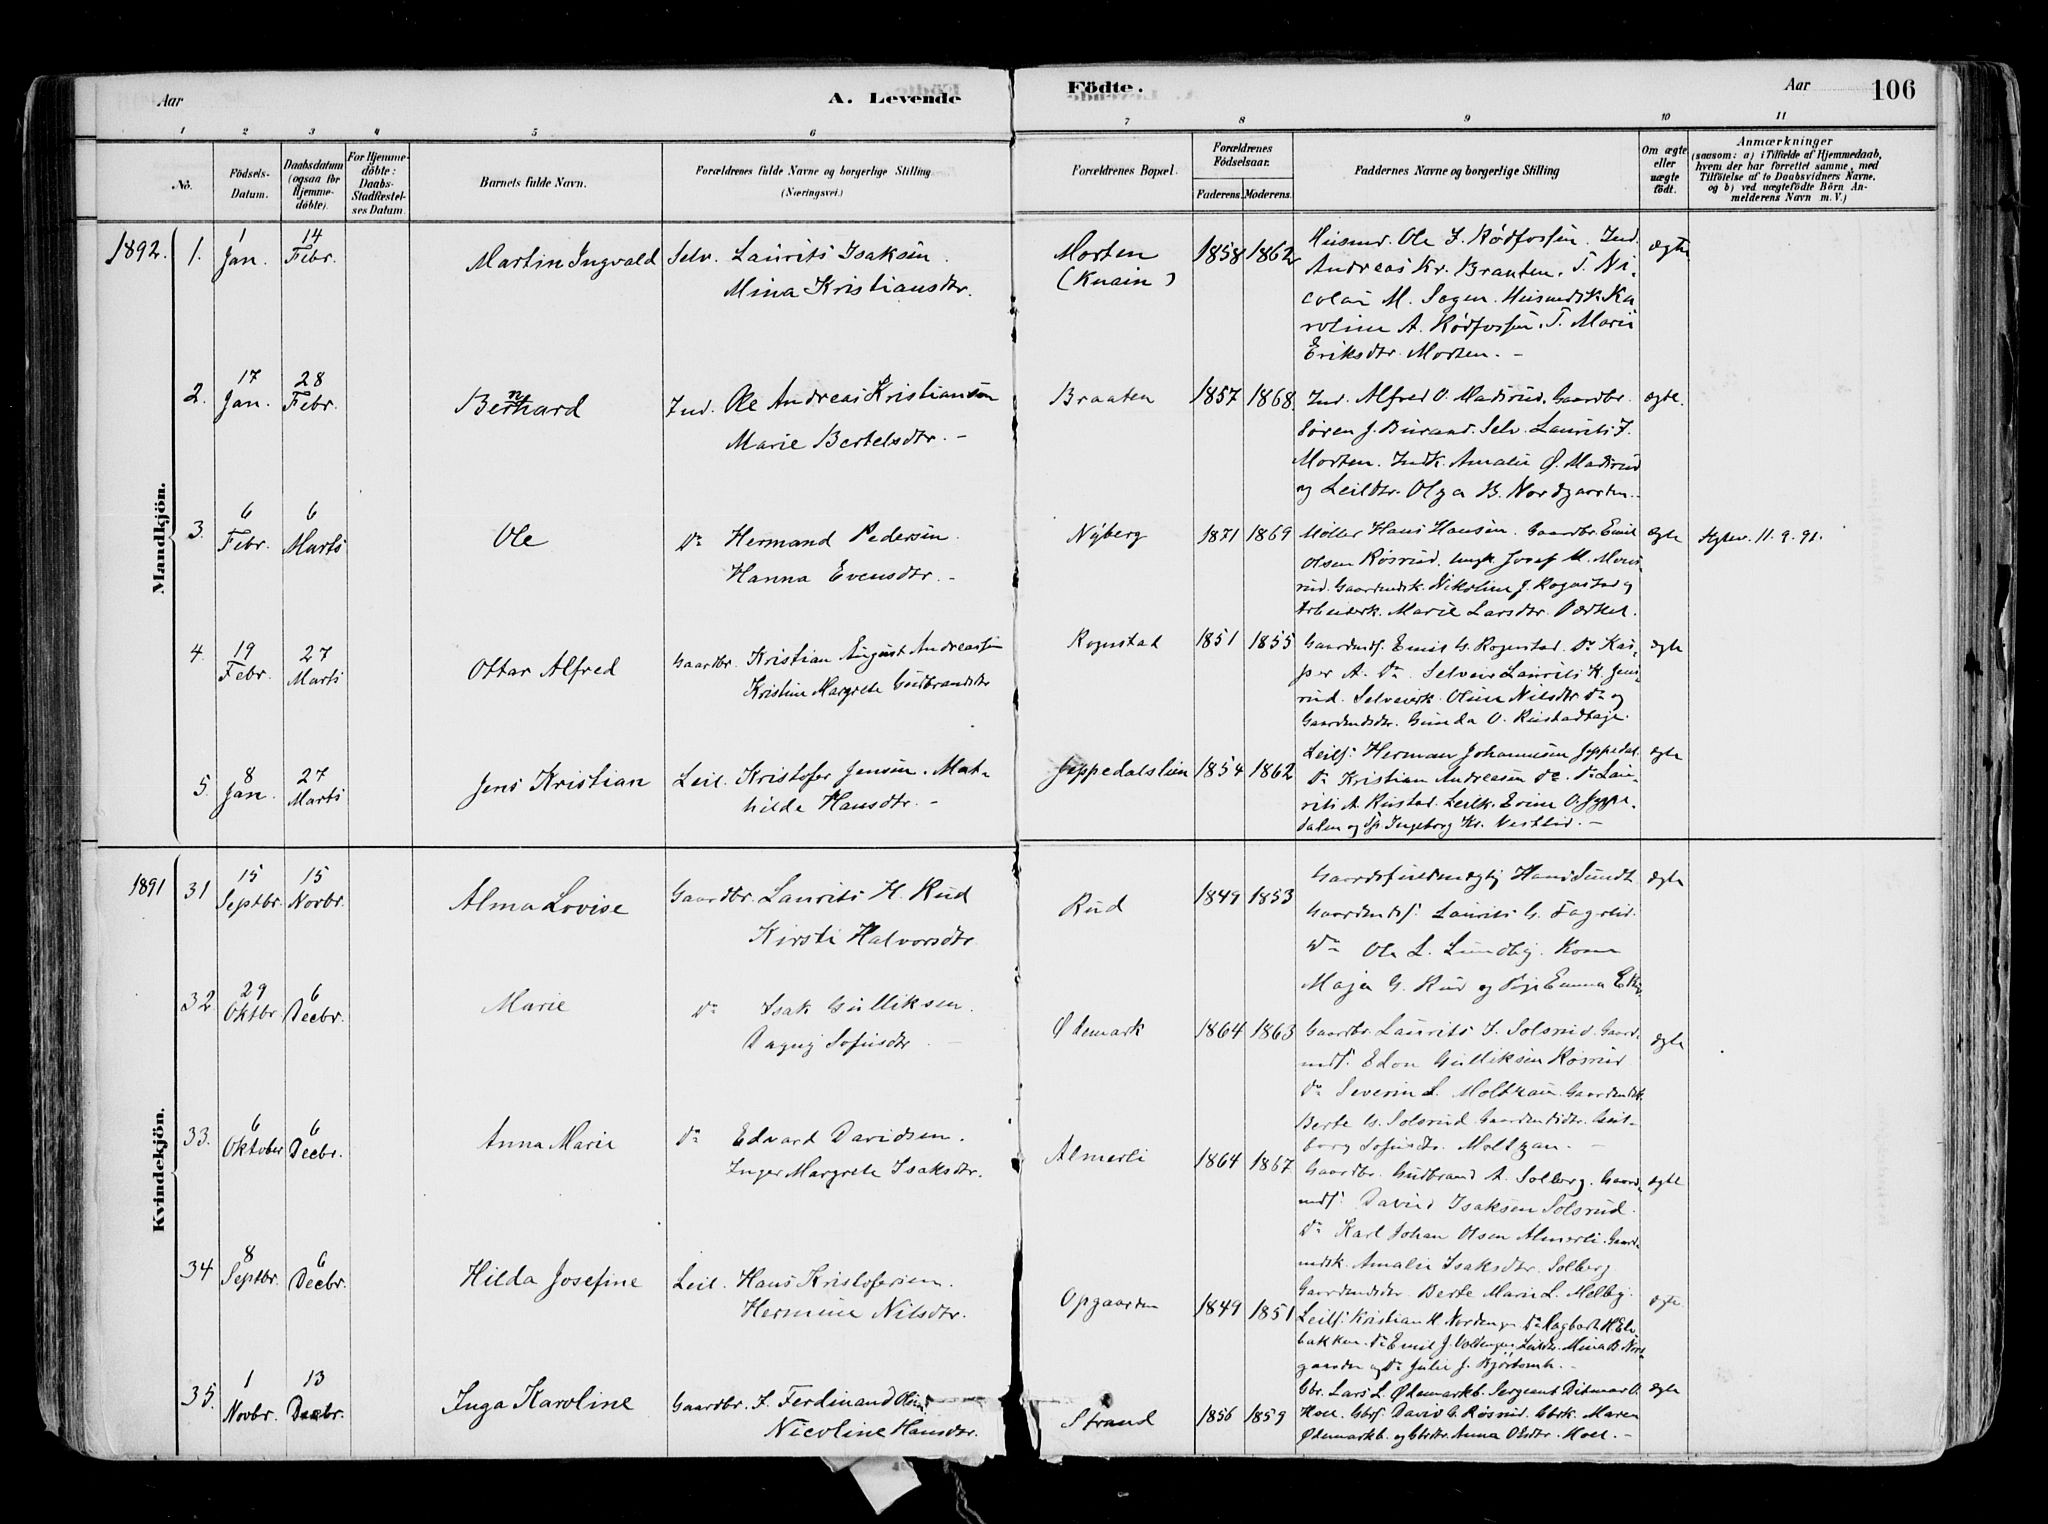 Aar
A. Levende
Födte.
Aar
106
1 2 3 4 5 6 7 8 9 10 11
No.
Födsels-Datum.
Daabsdatum (ogsaa for Hjemmedöbte).
For Hjemmedöbte: Daabs-Stadfæstelses Datum.
Barnets fulde Navn.
Forældrenes fulde Navne og borgerlige Stilling (Næringsvei.)
Forældrenes Bopæl.
Forældrenes Födselsaar.
Faderens. Moderens.
Faddernes Navne og borgerlige Stilling
Om ægte eller uægte födt.
Anmærkninger
(saasom: a) i Tilfælde af Hjemmedaab,
hvem der har forrettet samme, med
Tilföielse af to Daabsvidners Navne,
og b) ved uægtefödte Börn Anmelderens Navn m. V.)
Mandkjön.
1892. 1. 1 Jan. 14 Febr. Martin Ingvald Selv. Laurits Isaksen.
Mina Kristiansdtr.
Morten (Knain) 1858 1862 ægte
Husmd. Ole I. Rödfossen. Ind.
Andreas Kr. Braaten. T. Ni-
colai M. Sogn. Husmdsk. Ka
roline A. Rödfossen. T. Marie
Eriksdtr. Morten. -
2. 17 Jan. 28 Febr. Bernhard Ind. Ole Andreas Kristiansen
Marie Bertelsdtr. -
Braaten 1857 1868. ægte.
Ind. Alfred O. Madsrud. Gaardbr.
Sören J. Burand. Selv. Laurits I.
Morten. Indk. Amalie Ø. Madsrud
og Leildtr. Olga B. Nordgaarden.
3. 6 Febr. 6 Marts Ole Do Hermand Pedersen.
Hanna Evensdtr. -
Nyberg 1871 1869 ægte 11.9.91.
Möller Hans Hansen. Gaardbr. Emil
Olsen Rösrud. Ungk. Josef M.
Gaardmdsk. Nikoline J. Rognstad og
Arbeiderk. Marie Larsdtr.
4. 19 Febr. 27 Marts Ottar Alfred Gaardbr. Kristian August Andreassen
Kristine Margrete Gudbrandsdtr
Rognstad 1851 1855 ægte
Gaardmds. Emil G. Rognstad. Do Kas-
per A. Do Selveier Laurits K. Jens-
rud. Selveierk. Oline Nilsdtr. Do og
Gaardmdsdtr. Gunda O. Rustadhaje.
5. 8 Jan. 27 Marts Jens Kristian Leil. Kristofer Jensen. Mat-
hilde Hansdtr. -
Jeppedalslien 1854 1862 ægte
Leils. Herman Johannesen Jeppedal.
Do Kristian Andreasen Do. Do Lau-
rits A. Rustad. Leilk. Evine O. Jeppe-
dalen og Ingeborg Kr. Vestlid. -
Kvindekjön.
1891 31 15 Septbr. 15 Novbr. Alma Lovise Gaardbr. Laurits H. Rud
Kirsti Halvorsdtr.
Rud 1849 1853 ægte
Gaardsfuldmægtig Hans Sundt
Gaardmds. Laurits G. Fagerlid.
Do Ole L. Lundby. Kone
Maja G. Rud og Pige Emma
32. 29 Oktbr 6 Decbr. Marie Do Isak Gulliksen.
Dagny Sofusdtr. -
Ødemark 1864 1863 ægte
Gaardbr. Laurits I. Solsrud. Gaard-
mds. Edon Gulliksen Rösrud
Do Severin L. Moltzau. Gaardmdsk.
Berte G. Solsrud. Gaardmdsdtr.
borg Sofusdtr. Moltzau. -
33. 6 Oktober 6 Decbr. Anna Marie Do Edvard Davidsen.
Inger Margrete Isaksdtr.
Almerli 1864 1867 ægte
Gaardbr. Gudbrand A. Solberg. Gaard-
mds. David Isaksen Solsrud.
Do Karl Johan Olsen Almerli. Gaard-
mdsk. Amalie Isaksdtr. Solberg
Gaardmdsdtr. Berte Marie L. Melby.
34 8 Septbr. 6 Decbr. Hilda Josefine Leil. Hans Kristofersen.
Hermine Nilsdtr.
Opgaarden 1849 1851 ægte.
Leils. Kristian H. Nordengen Do Dagbart H. Elv-
bakken. Do Emil J. Leildtr. Mina B. Nord-
gaarden og Do Julie J. -
35. 1 Novbr. 13 Decbr. Inga Karoline Gaardbr. I. Ferdinand
Nicoline Hansdtr.
Strand 1856 1859 ægte
Gbr. Lars L. Ødemarkb. Sergeant Ditmar O.
Hoel. Gbrs. David G. Rösrud. Gbrk. Maren
Ødemarkb. og Gbrdtr. Anna Olsdtr. Hoel. -